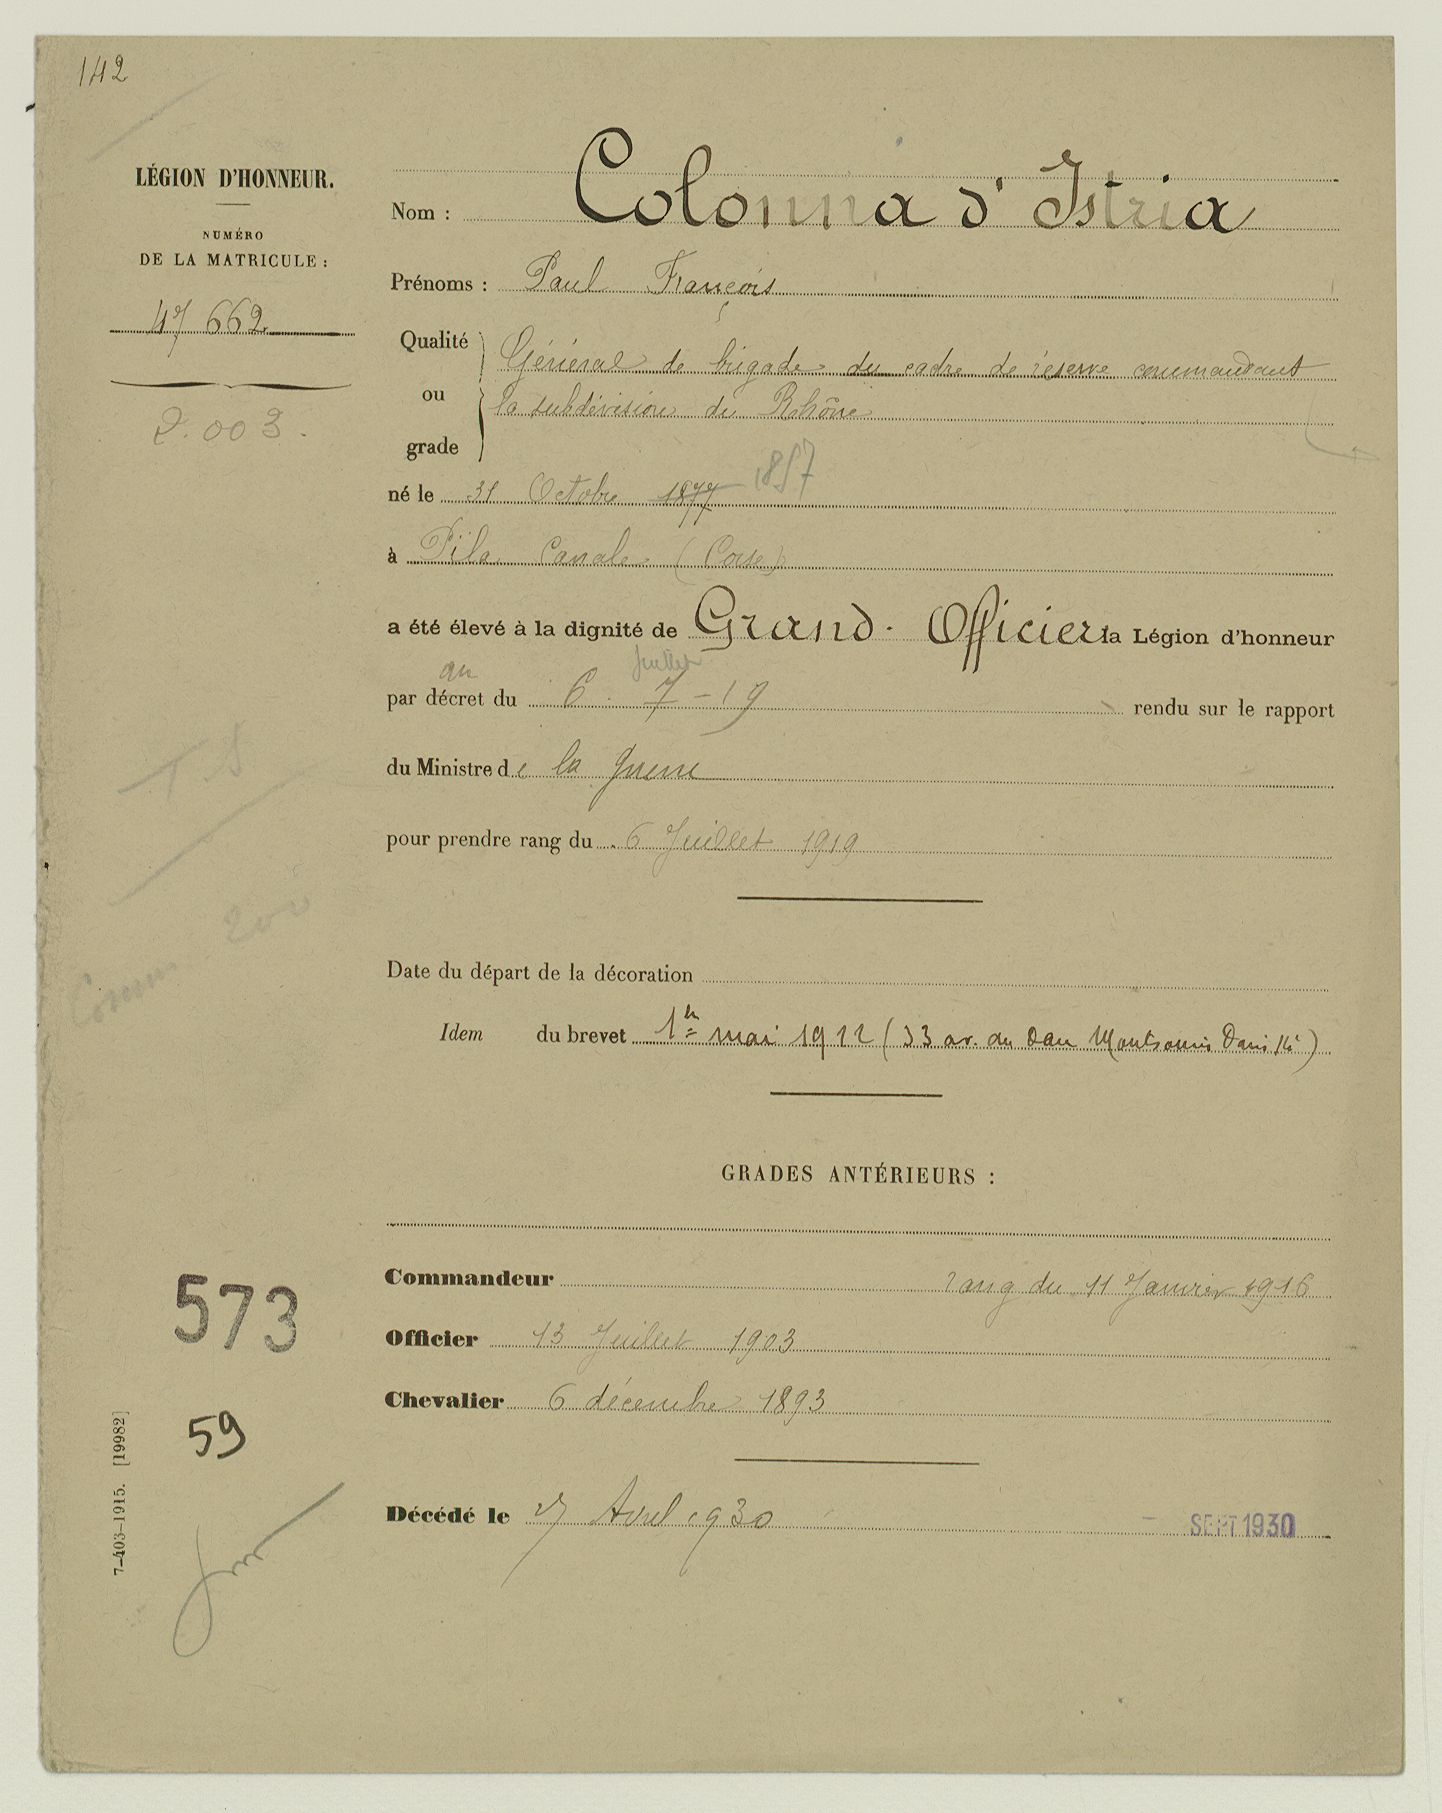 142
LÉGION D'HONNEUR.
NUMÉRO
DE LA MATRICULE :
47 662
2.003.
Nom : Colonna d'Istria
Prénoms : Paul François
Qualité
ou
grade
Général de brigade du cadre de réserve commandant
la subdivision du Rhône
né le 31 Octobre 1877 1857
à Pila Canale (Corse)
a été élevé à la dignité de Grand-Officier la Légion d'honneur
Juillet
par décret du 6 - 7 - 19 rendu sur le rapport
du Ministre de la Guerre
pour prendre rang du 6 Juillet 1919
T.S
200
Comm
Date du départ de la décoration
Idem du brevet 1er mai 1922 (33 av. du Parc Montsouris Paris 14e)
GRADES ANTÉRIEURS :
Commandeur rang du 11 Janvier 1916
Officier 13 Juillet 1903
Chevalier 6 décembre 1893
573
59
Décédé le 27 Avril 1930
- SEPT 1930
7-403-1915. [19982]